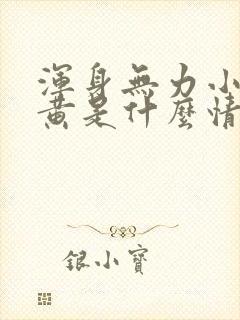 渾身無力小
黃是什麼情
銀小寶